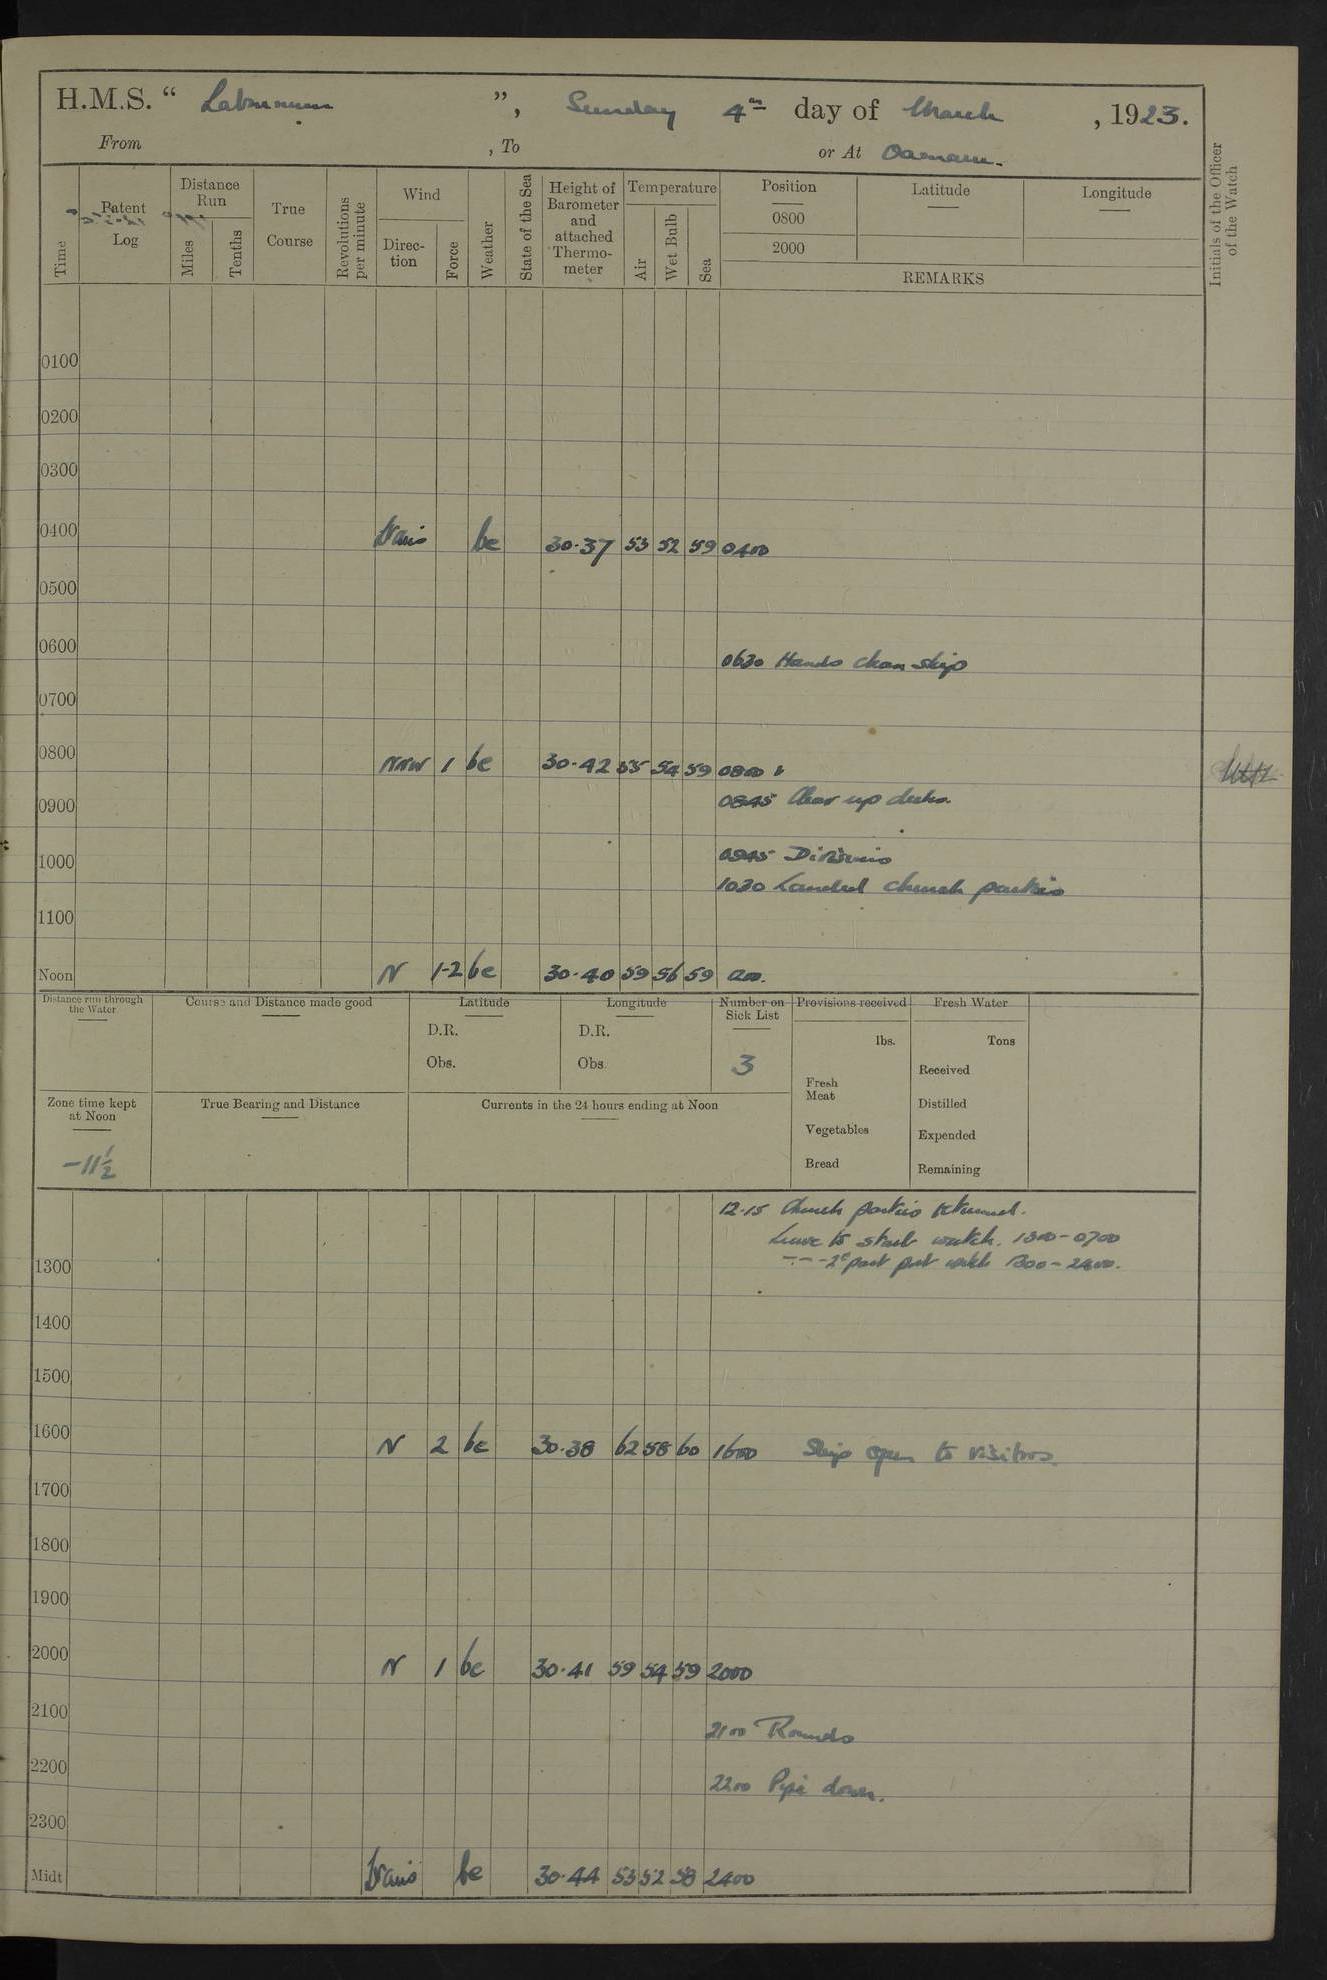 H.M.S. “ Laburnum ”, Sunday 4th day of March , 1923.
From , To or At Oamaru.
Time
Patent Log
Distance Run
Miles
Tenths
True Course
Revolutions per minute
Wind
Direction
Force
Weather
State of the Sea
Height of Barometer and attached Thermometer
Temperature
Air
Wet Bulb
Sea
Position Latitude Longitude
0800
2000
REMARKS
Initials of the Officer of the Watch
0100
0200
0300
0400 bc 30.37 53 52 59 0400
0500
0600
0630 Hands clean ship
0700
0800 NNW 1 bc 30.42 55 54 59 0800
0845 Clear up decks.
0900
0945 Divisions
1000
1030 Landed church parties
1100
Noon N 1-2 bc 30.40 59 56 59
Distance run through the Water
Course and Distance made good
Latitude
D.R.
Obs.
Longitude
D.R.
Obs.
Number on Sick List
3
Provisions received
lbs.
Fresh Meat
Vegetables
Bread
Fresh Water
Tons
Received
Distilled
Expended
Remaining
Zone time kept at Noon
-11½
True Bearing and Distance
Currents in the 24 hours ending at Noon
12.15 Church parties returned.
Leave to starb watch. 1300-0700
- - - 2nd part port watch 1300-2400.
1300
1400
1500
1600 N 2 bc 30.38 62 58 60 1600 Ship open to visitors.
1700
1800
1900
2000 N 1 bc 30.41 59 54 59 2000
2100
2100 Rounds
2200
2200 Pipe down.
2300
Midt bc 30.44 53 52 58 2400